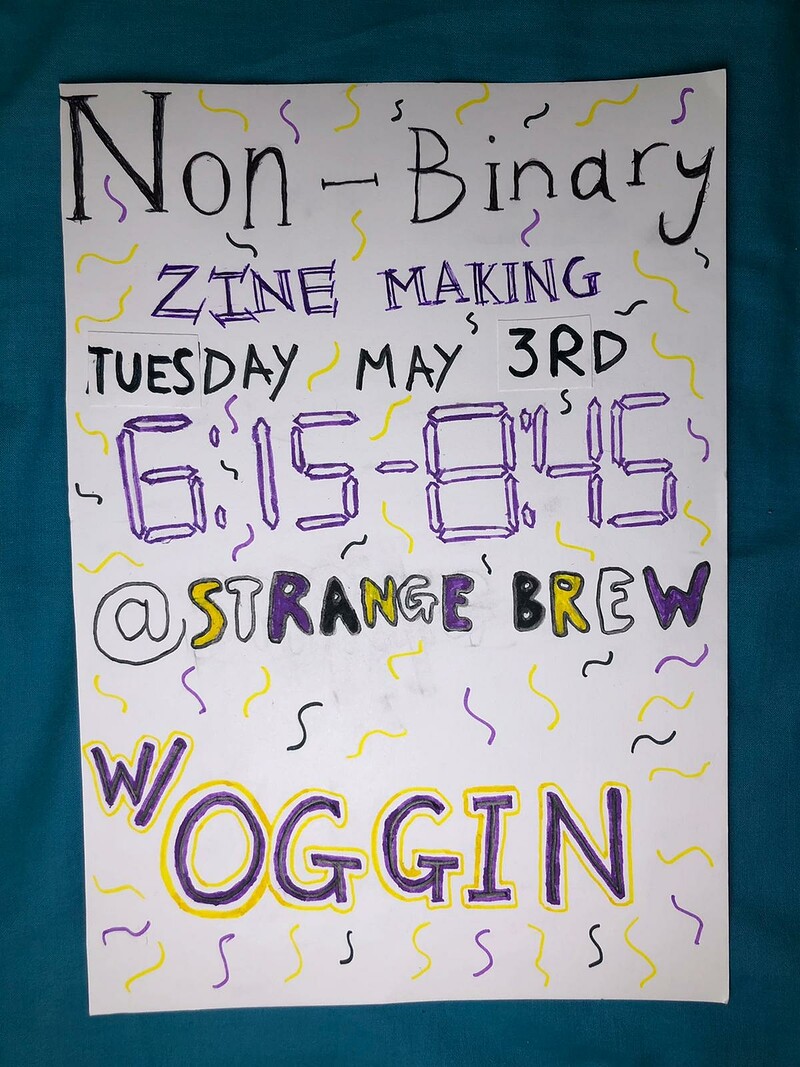 Non-Binary
ZINE MAKING
TUESDAY MAY 3RD
6:15-8:45
@STRANGE BREW
W/OGGIN